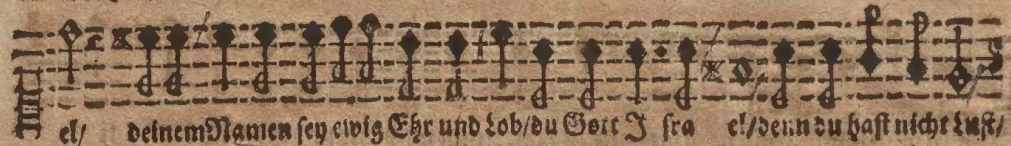 el/ deinem Namen sey ewig Ehr und Lob/du Gott I sra el/denn du hast nicht Lust/